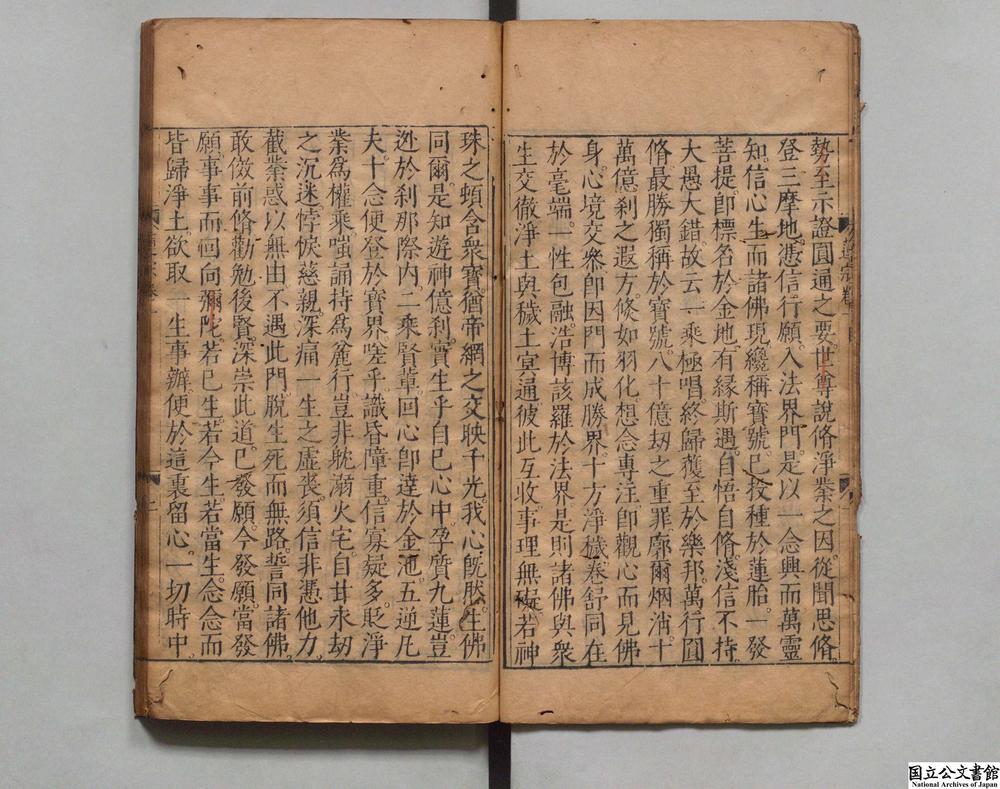 勢至示證圓通之要。世尊說脩淨業之因。從聞思脩。
登三摩地。憑信行願。入法界門。是以一念興而萬靈
知。信心生而諸佛現。纔稱寶號。已投種於蓮胎。一發
菩提。卽標名於金地。有緣斯遇。自悟自脩。淺信不持。
大愚大錯。故云一乘極唱。終歸獲至於樂邦。萬行圓
脩。最勝獨稱於寶號。八十億劫之重罪。廓爾烟消。十
萬億刹之遐方。倏如羽化。想念專注。卽觀心而見佛
身。心境交叅。卽因門而成勝界。十方淨穢。卷舒同在
於毫端。一性包融。浩博該羅於法界。是則諸佛與衆
生交徹。淨土與穢土冥通。彼此互收。事理無礙。若神
珠之頓含衆寶。猶帝網之交映千光。我心旣然。生佛
同爾。是知遊神億刹。實生乎自已心中。孕質九蓮。豈
迯於刹那際內。二乘賢輩。回心卽達於金池。五逆凡
夫。十念便登於寶界。嗟乎識昏障重。信寡疑多。貶淨
業爲權乘。嗤誦持爲麄行。豈非躭溺火宅。自甘永劫
之沉迷。悖悷慈親。深痛一生之虛喪。須信非憑他力。
截業惑以無由。不遇此門。脫生死而無路。誓同諸佛。
敢傚前脩。勸勉後賢。深崇此道。已發願。今發願。當發
願。事事而回向彌陀。若已生。若今生。若當生。念念而
皆歸淨土。欲取一生事辦。便於這裏留心。一切時中
国立公文書館
National Archives of Japan